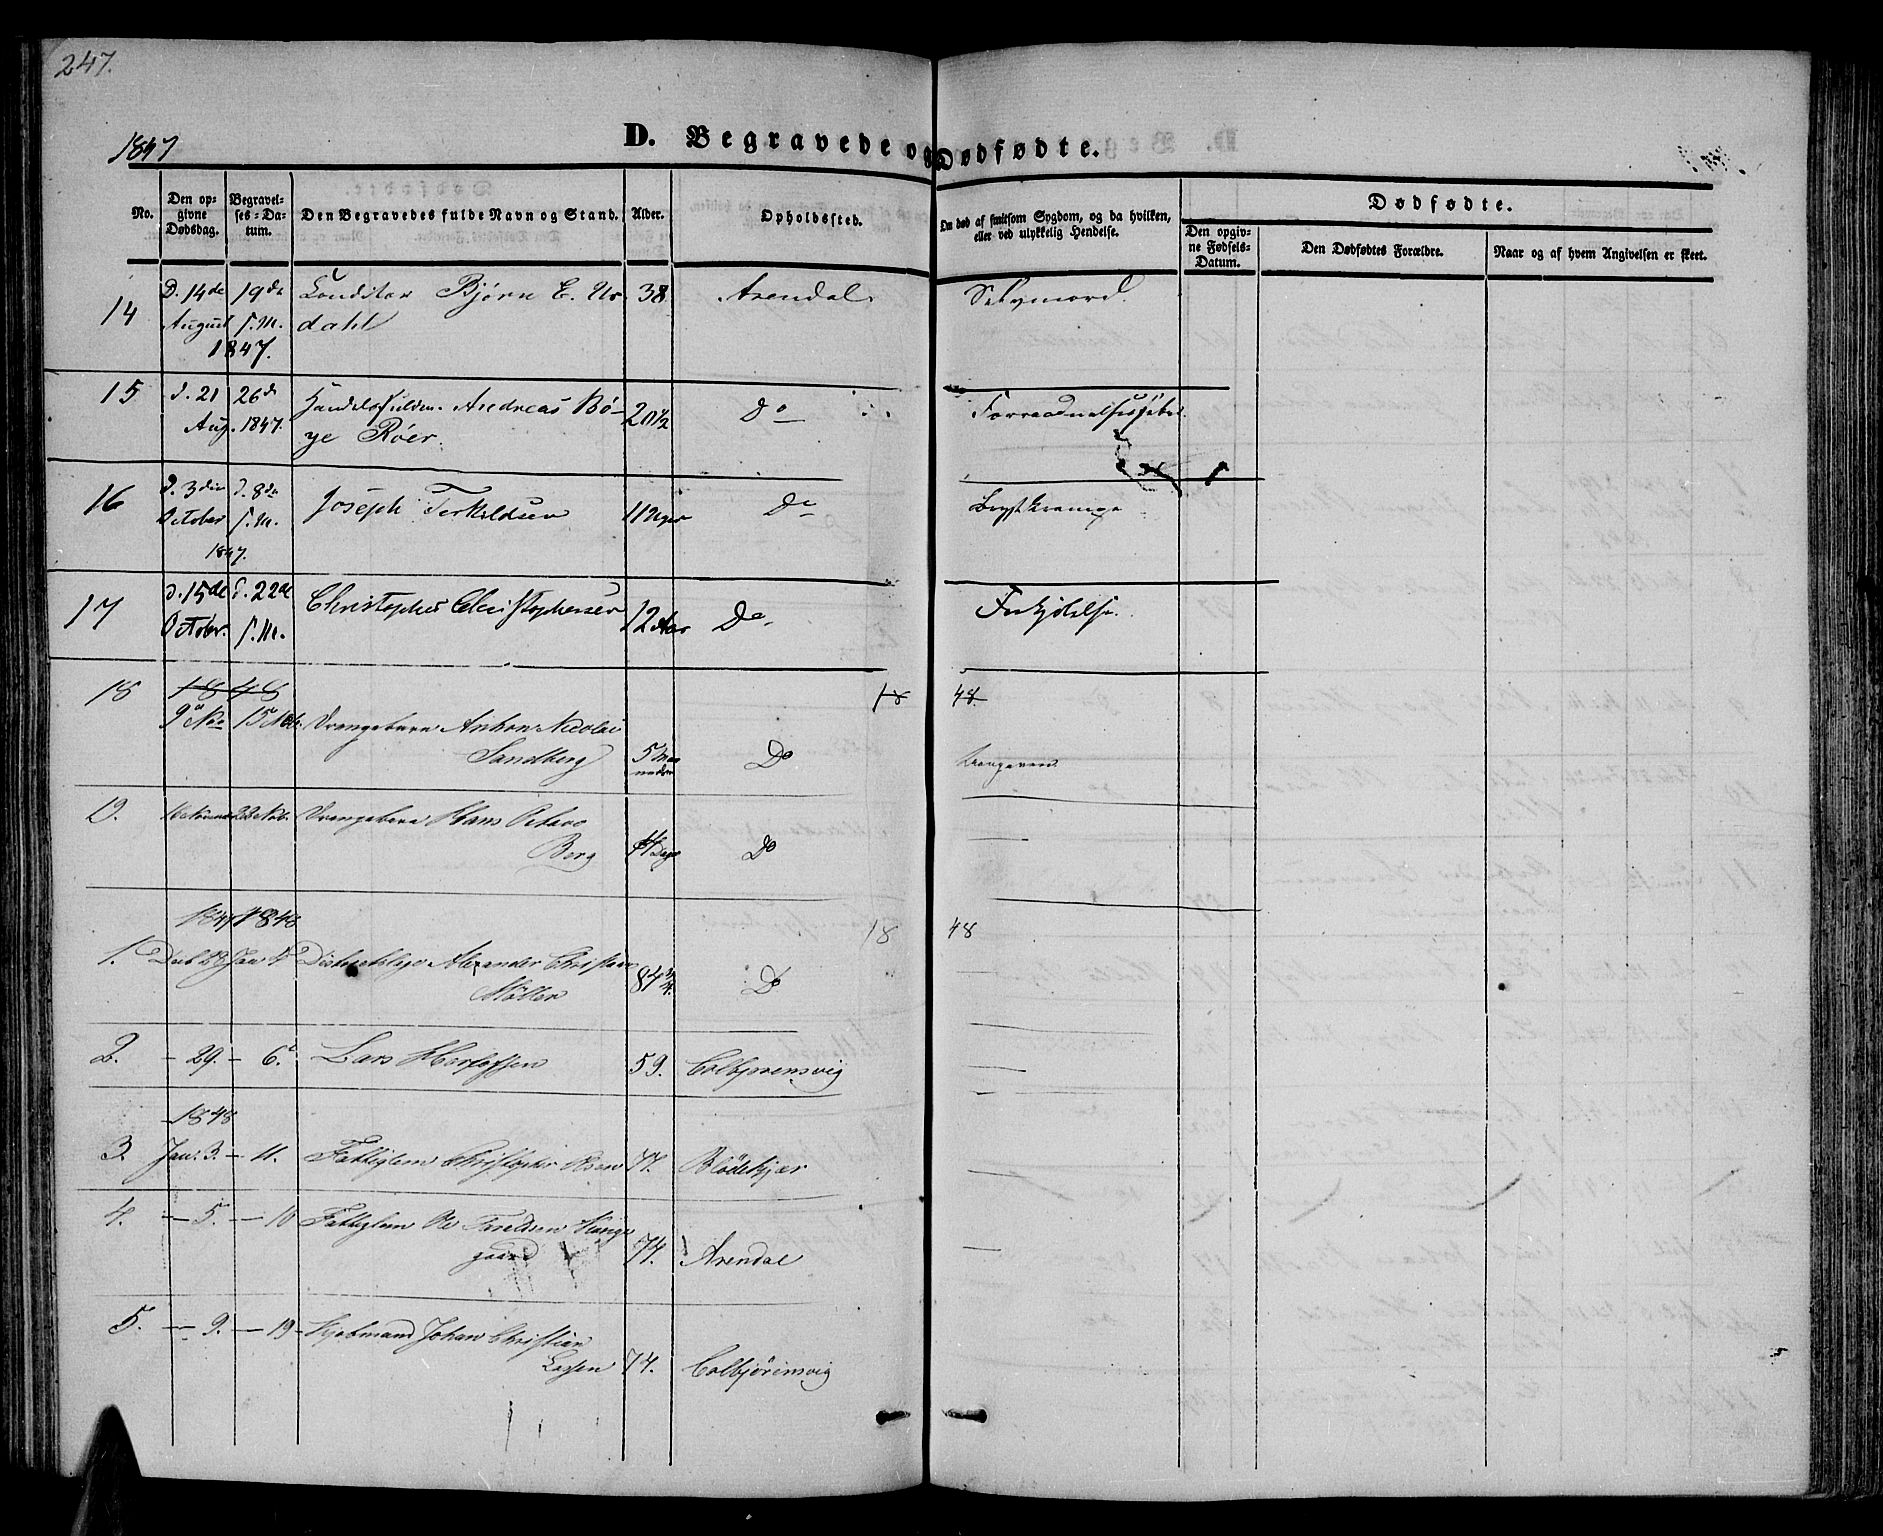 247.
1847
D. Begravede og Dødfødte.
No.
Den opgivne Dødsdag.
Begravelses-Datum.
Den Begravedes fulde Navn og Stand.
Alder.
Opholdssted.
Om død af smitsom Sygdom, og da hvilken, eller ved ulykkelig Hendelse.
Dødfødte.
Den opgivne Fødsels-Datum.
Den Dødfødtes Forældre.
Naar og af hvem Angivelsen er skeet.
14 D. 14de 19de Conditor Bjørn E. Ur- 38. Arendal. Selvmord.
August s.M. dahl
1847.
15 d. 21 26de Andreas Bø- 20½ Do Forraadnelsesfeber.
Aug. 1847. ye Röer.
16 d. 3die d. 8de Joseph Terkildsen 11 Uger Do Brystkrampe
October s.M.
1847.
17 d. 15de d. 22de Christopher Christophersen 12 Aar Do Forkjølelse.
Octobr. s.M.
18 1848 18 48.
9de Nov 15 Nov. Drengebarn Anton Nicolai
Sandberg 5 Maaneder Do
19. 22 Nov. Drengebarn Hans
Berg 14 Dage Do
1847 1848 18 48
1. Decb Jan Alexander Christian
Møller 84¾ Do
2. - 29. - 6. Lars 59. Colbjørnsvig
1848
3. Jan. 3. - 11. Fattiglem Christopher 77. Blödekjær
4. - 5. - 10 Fattiglem
gaard 74. Arendal
5. - 9. - 19 - Kjøbmand Johan Christian
Lassen 74. Colbjörnsvig